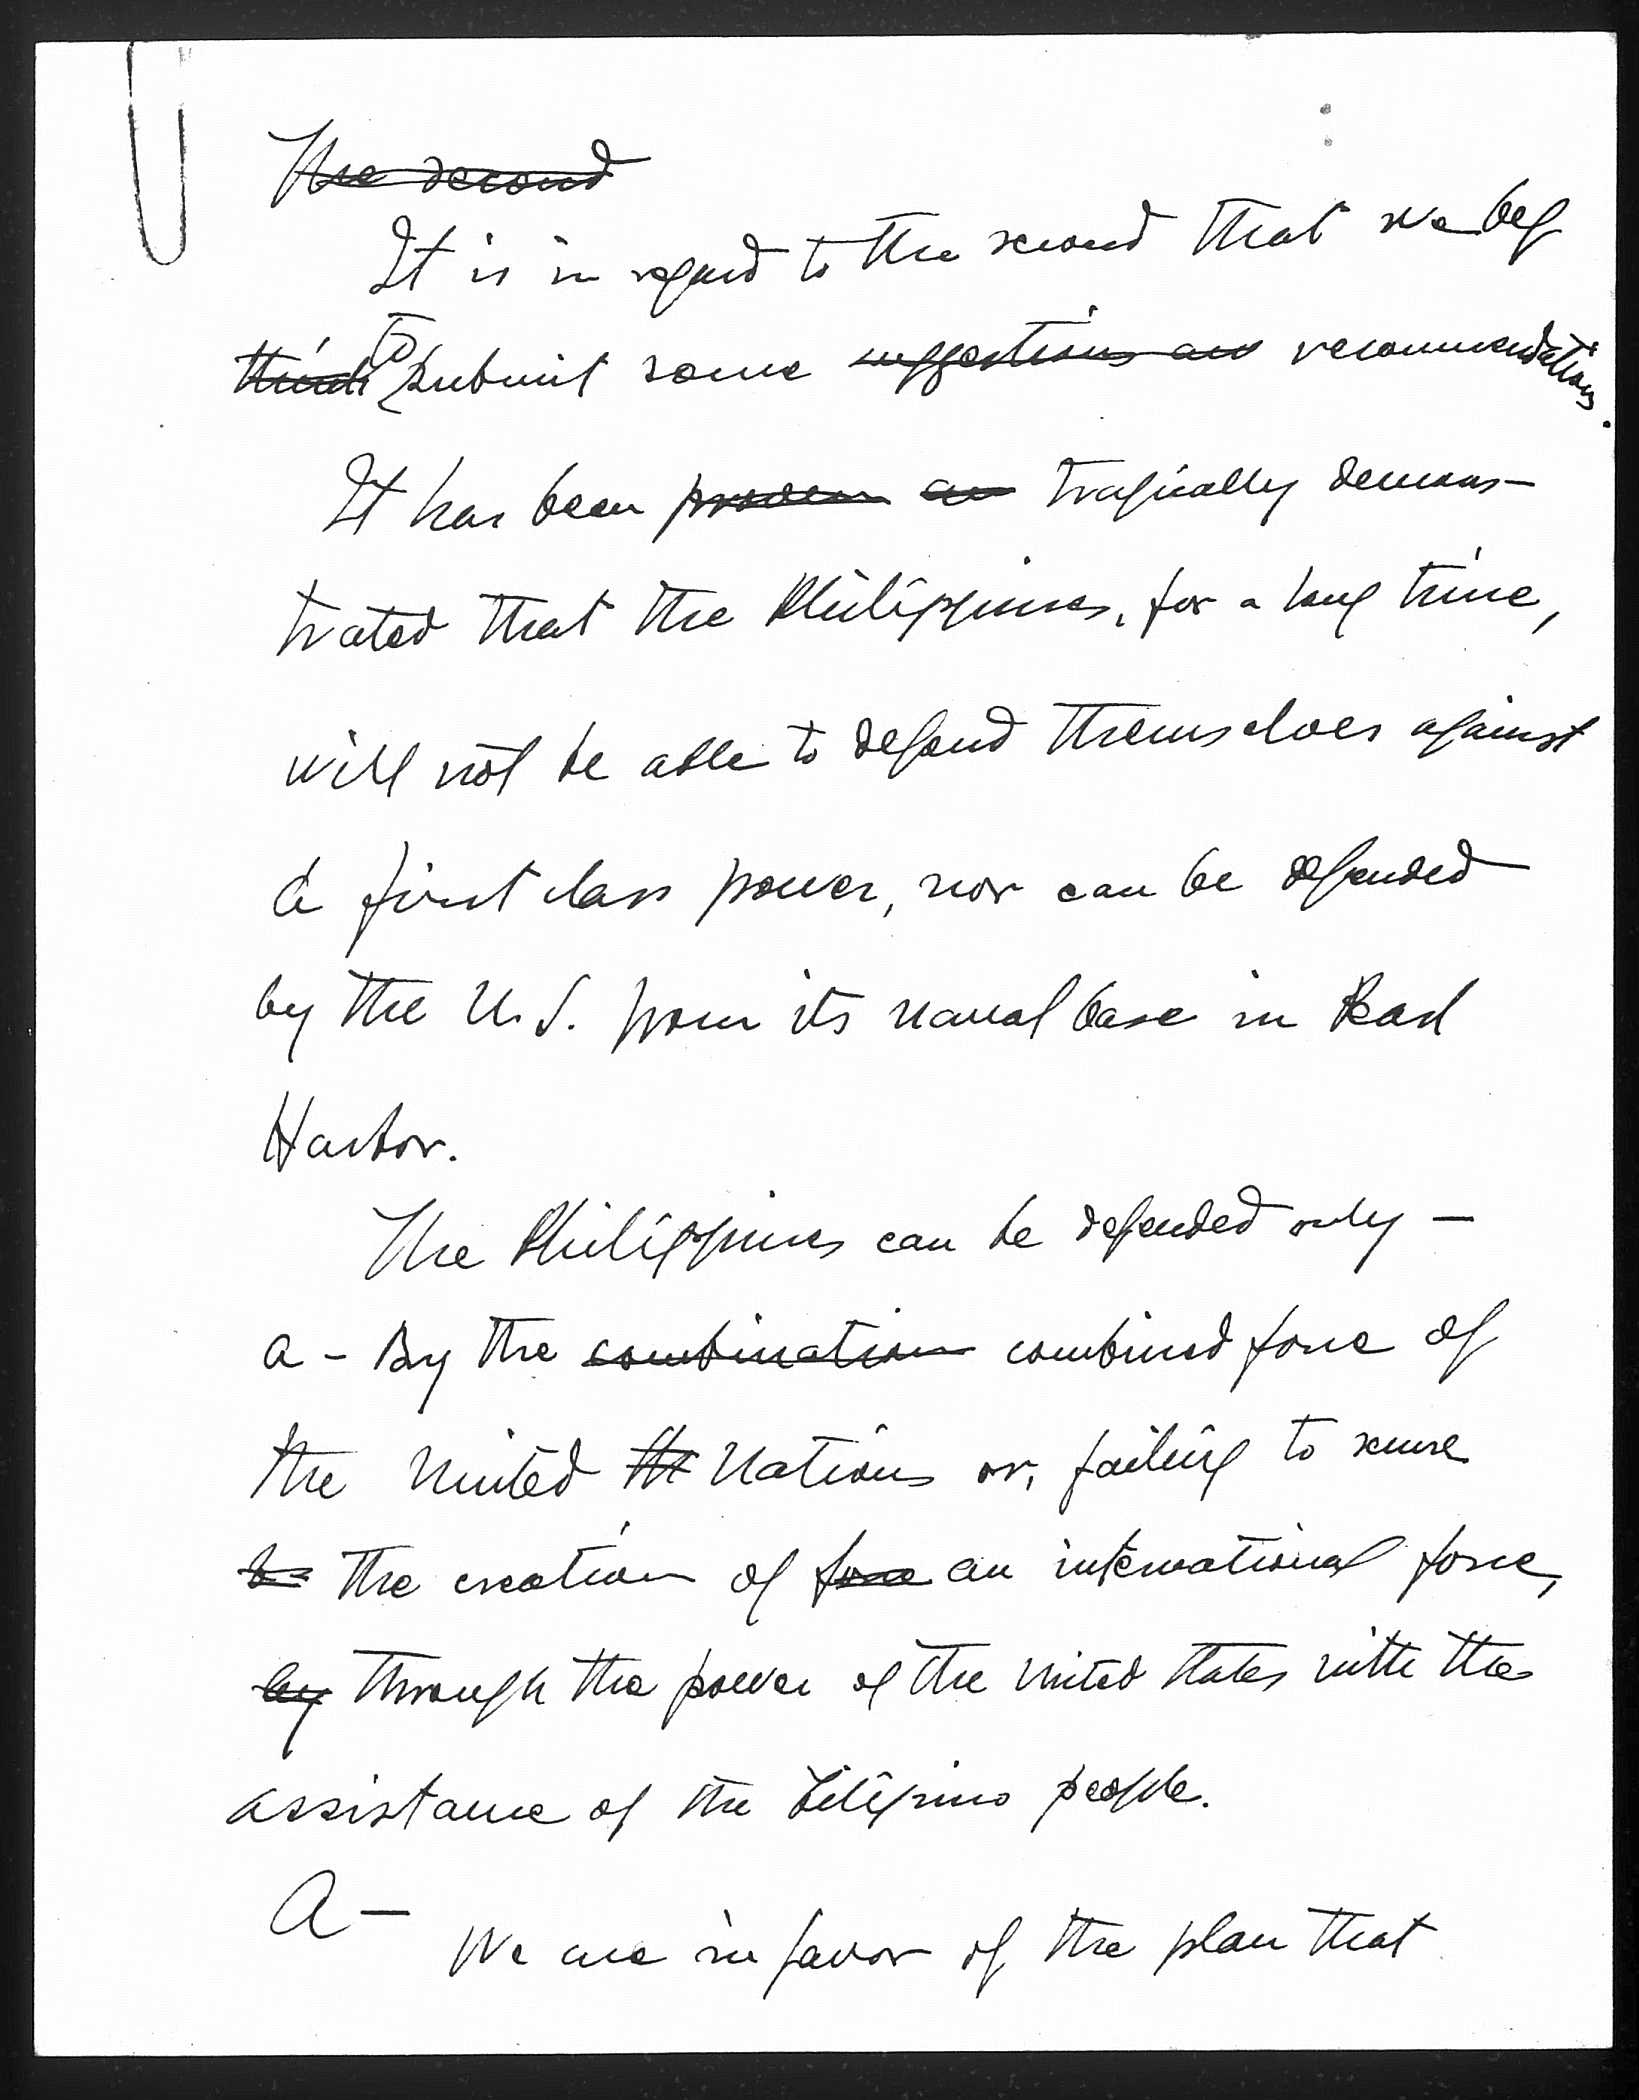 The second
It is in regard to the second that we beg
think to submit some suggestions and recommendations.
It has been proven an tragically demons-
trated that the Philippines, for a long time,
will not be able to defend themselves against
a first class power, nor can be defended
by the U.S. from its naval base in Pearl
Harbor.
The Philippines can be defended only —
a - By the combination combined force of
the United Nations or, failing to secure
the creation of force an international force,
by through the power of the United States with the
assistance of the Filipino people.
A —
We are in favor of the plan that